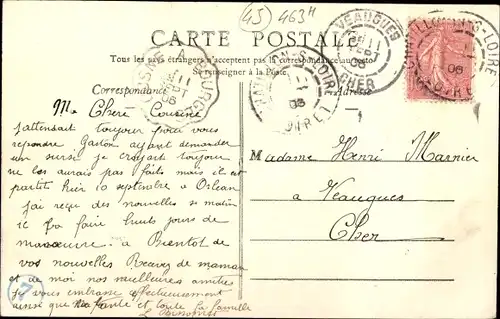 45 463H
CARTE POSTALE
Tous les pays étrangers n'acceptent pas la correspondance au recto
Se renseigner à la Poste.
Correspondance
Adresse
VEAUGUES
CHER
11 SEPT 06
CHATILLON-S-LOIRE
LOIRET
Ma Chere Cousine
j'attensait toujour pour vous
repondre. Gaston ayant demander
un sursi je croyait toujour
ne les aurais pas faits mais il est
partit hier 10 septembre a Orlean
j'ai reçu des nouvelles ce matin
ic va faire huits jours de
manœuvre. a Bientot de
vos nouvelles Recevez de maman
et de moi nos meilleures amities
je vous embrasse affectueusement
ainsi que ma tante et toute la famille
Madame Henri Marnier
a Veaugues
Cher
7